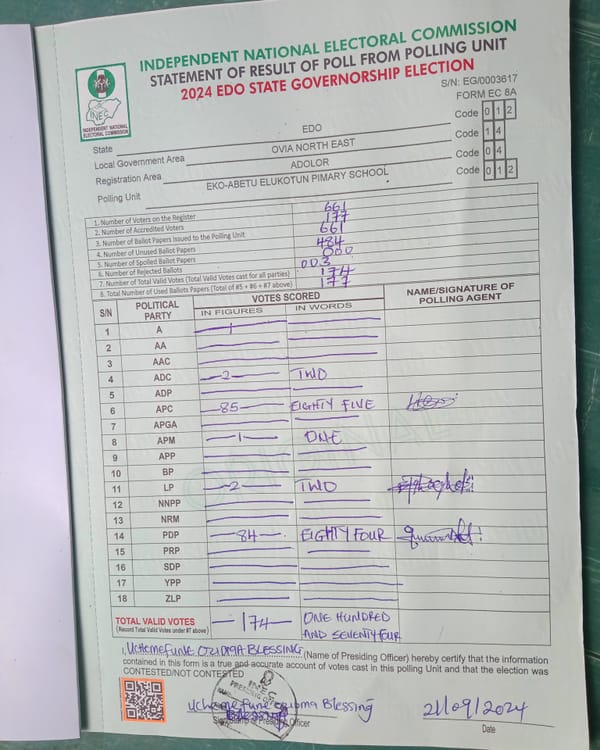 INDEPENDENT NATIONAL ELECTORAL COMMISSION
STATEMENT OF RESULT OF POLL FROM POLLING UNIT
2024 EDO STATE GOVERNORSHIP ELECTION
S/N: EG/0003617
FORM EC 8A
INEC
INDEPENDENT NATIONAL ELECTORAL COMMISSION
State EDO Code 0 1 2
Local Government Area OVIA NORTH EAST Code 1 4
Registration Area ADOLOR Code 0 4
Polling Unit EKO-ABETU ELUKOTUN PIMARY SCHOOL Code 0 1 2
1. Number of Voters on the Register 661
2. Number of Accredited Voters 177
3. Number of Ballot Papers Issued to the Polling Unit 661
4. Number of Unused Ballot Papers 484
5. Number of Spoiled Ballot Papers 000
6. Number of Rejected Ballots 003
7. Number of Total Valid Votes (Total Valid Votes cast for all parties) 174
8. Total Number of Used Ballots Papers (Total of #5 + #6 + #7 above) 177
S/N POLITICAL PARTY VOTES SCORED NAME/SIGNATURE OF POLLING AGENT
IN FIGURES IN WORDS
1 A
2 AA
3 AAC
4 ADC 2 TWO
5 ADP
6 APC 85 EIGHTY FIVE
7 APGA
8 APM 1 ONE
9 APP
10 BP
11 LP 2 TWO
12 NNPP
13 NRM
14 PDP 84 EIGHTY FOUR
15 PRP
16 SDP
17 YPP
18 ZLP
TOTAL VALID VOTES 174 ONE HUNDRED AND SEVENTY FOUR
(Record Total Valid Votes under #7 above)
I, UCHEMEFUNE OZIOMA BLESSING (Name of Presiding Officer) hereby certify that the information
contained in this form is a true and accurate account of votes cast in this polling Unit and that the election was
CONTESTED/NOT CONTESTED
Uchemefune Ozioma Blessing 21/09/2024
Officer Date